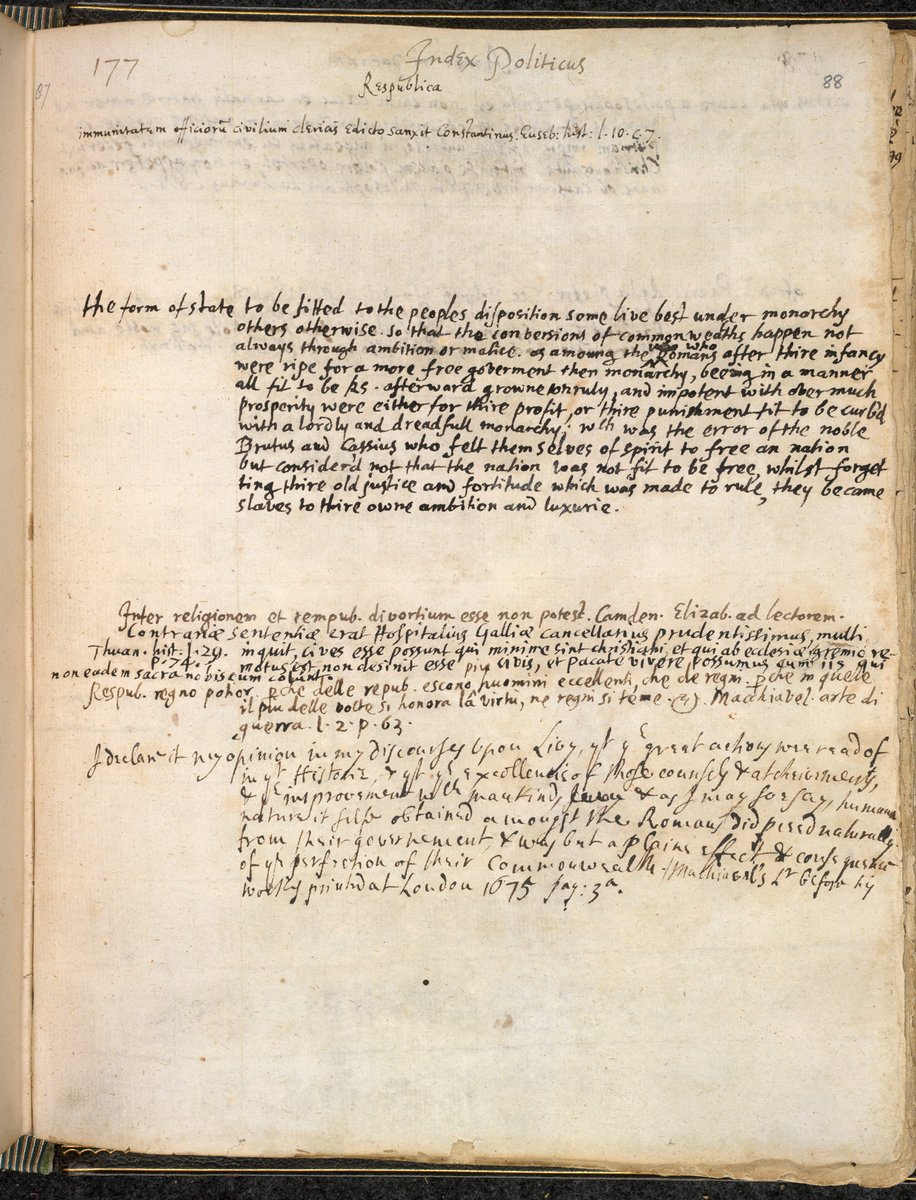 177
Index Politicus
88
87
Respublica
immunitatem officiorū civilium clericis Edicto sanxit Constantinus. Euseb: hist: l. 10. c. 7.
the form of state to be fitted to the peoples disposition some live best under monarchy
others otherwise. so that the conversions of commonweaths happen not
always through ambition or malice. as amoung the Romans who after thire infancy
were ripe for a more free goverment then monarchy, beeing in a manner
all fit to be ks. afterward growne unruly, and impotent with overmuch
prosperity were either for thire profit, or thire punishment fit to be curb'd
with a lordly and dreadfull monarchy; wch was the error of the noble
Brutus and Cassius who felt themselves of spirit to free an nation
but consider'd not that the nation was not fit to be free, whilst forget
ting thire old justice and fortitude which was made to rule, they became
slaves to thire owne ambition and luxurie.
Inter religionem et rempub. divortium esse non potest. Camden. Elizab. ad lectorem.
Contrariæ sententiæ erat Hospitalius Galliæ cancellarius prudentissimus, multi
Thuan. hist. l. 29. inquit, cives esse possunt qui minime sint christiani, et qui ab ecclesiæ gremio re-
p. 74. motus est, non desinit esse civis, et pacate vivere possumus cum iis qui
non eadem sacra nobiscum colunt.
Respub. regno potior. perche delle repub. escono huomini eccellenti, che de regni. perche in quelle
il piu delle volte si honora la virtù, ne regni si teme. Macchiavel. arte di
guerra. l. 2. p. 63.
I declare it my opinion in my discourses upon Livy, yt ye great actions wee read of
in yt Historie, & yt ye excellencie of those counsels & atcheivments,
& ye improvement wch mankind, & as I may soe say, humane
nature it selfe obtained amongst the Romans did proceed naturally
from their governement, & was but a plaine effect & consequence
of ye perfection of their Commonwealth. Machiavel's Lr before his
works printed at London 1675 pag: 3a.